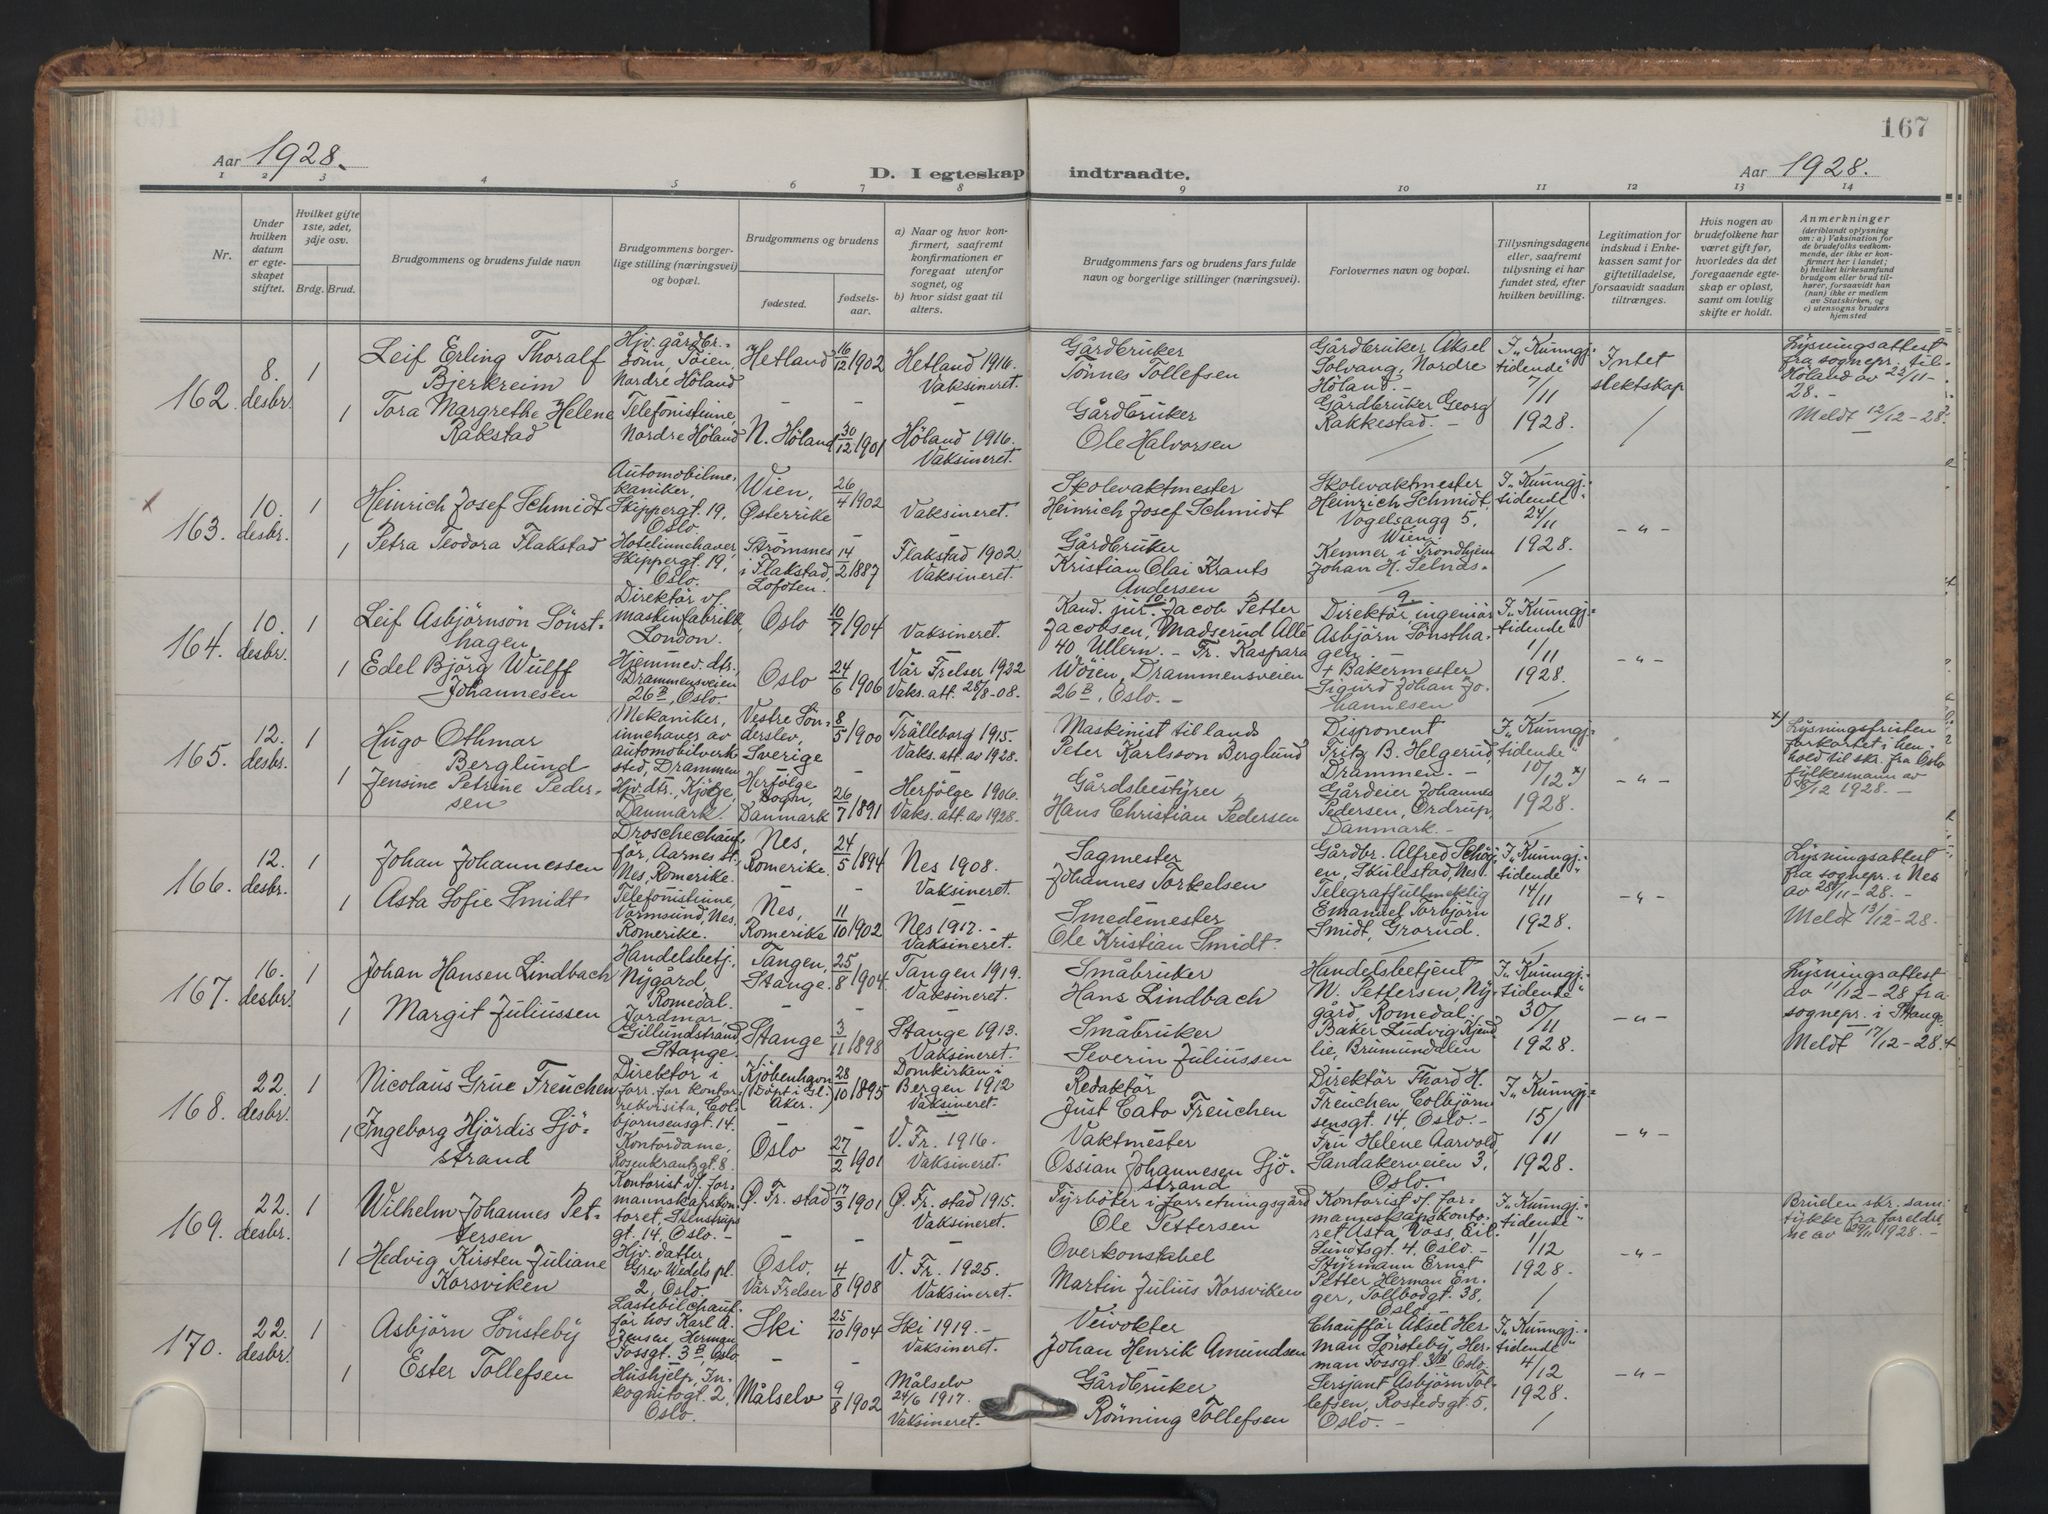 167
Aar 1928.
D. I egteskap indtraadte.
Aar 1928.
1 2 3 4 5 6 7 8 9 10 11 12 13 14
Nr.
Under hvilken datum er egteskapet stiftet.
Hvilket gifte 1ste, 2det, 3dje osv.
Brdg. Brud.
Brudgommens og brudens fulde navn
Brudgommens borgerlige stilling (næringsvei) og bopæl.
Brudgommens og brudens
fødested.
fødselsaar.
a) Naar og hvor konfirmert, saafremt konfirmationen er foregaat utenfor sognet, og
b) hvor sidst gaat til alters.
Brudgommens fars og brudens fars fulde navn og borgerlige stillinger (næringsvei).
Forlovernes navn og bopæl.
Tillysningsdagene eller, saafremt tilysning ei har fundet sted, efter hvilken bevilling.
Legitimation for indskud i Enkekassen samt for giftetilladelse, forsaavidt saadan tiltrænges.
Hvis nogen av brudefolkene har været gift før, hvorledes da det foregaaende egteskap er opløst, samt om lovlig skifte er holdt.
Anmerkninger
(deriblandt oplysning om: a) Vaksination for de brudefolks vedkommende, der ikke er konfirmert her i landet; b) hvilket kirkesamfund brudgom eller brud tilhører, forsaavidt han (hun) ikke er medlem av Statskirken, og c) utensogns bruders hjemsted
162. 8. desbr. 1
Leif Erling Thoralf Bjerkreim
Hjv. gårdbr. sønn, Tøien, Nordre Höland
Hetland 16/12 1902
Hetland 1916. Vaksineret.
Gårdbruker Tönnes Tollefsen
Gårdbruker Aksel Solvang, Nordre Höland. -
Gårdbruker Georg Rakkestad. -
I „Kunngj. tidende" 7/11 1928.
Intet slektskap
Lysningsattest fra sognepr. til Höland av 23/11-28. -
Meldt 12/12-28.
1 Tora Margrethe Helene Rakstad
Telefonistinne, Nordre Höland
N. Höland 30/12 1901
Höland 1916. Vaksineret.
Gårdbruker Ole Halvorsen
163. 10. desbr. 1
Heinrich Josef Schmidt
Automobilmekaniker, Skippergt. 19, Oslo.
Wien, Österrike 26/4 1902
Vaksineret.
Skolevaktmester Heinrich Josef Schmidt
Skolevaktmester Heinrich Schmidt, Vogelsangg 5, Wien.
Kemner i Trondhjem Johan H. Selnäs.
I „Kunngj. tidende" 24/11 1928.
- " -
1 Petra Teodora Flakstad
Hotelinnehaver, Skippergt. 19, Oslo.
Strömsnes i Flakstad, Lofoten. 14/2 1887
Flakstad 1902. Vaksineret.
Gårdbruker Kristian Olai Krants Andersen
164. 10. desbr. 1
Leif Asbjörnsön Sönsthagen
Direktör v/ maskinfabrikk, London.
Oslo 10/7 1904
Vaksineret.
Kand. jur. Jacob Petter Jacobsen, Madserud Allé 40, Ullern. - Fr. Kaspara Wöien, Drammensveien 26B, Oslo. -
Direktör, ingeniör Asbjörn Sönsthagen. -
+ Bakermester Sigurd Johan Johannesen
I „Kunngj. tidende" 1/11 1928.
- " -
1 Edel Björg Wulff Johannesen
Hjemmev. dtr., Drammensveien 26B, Oslo.
Oslo 24/6 1906
Vår Frelser 1922 Vaks. att. 28/8-08.
165. 12. desbr. 1
Hugo Othmar Berglund
Mekaniker, innehaver av automobilverksted, Drammen
Vestre Sönderslev, Sverige 8/5 1900
Trälleborg 1915. Vaks. att. av 1928.
Maskinist til lands Peter Karlsson Berglund
Disponent Fritz B. Helgerud, Drammen. -
Gårdeier Johannes Pedersen, Ordrup, Danmark. -
I „Kunngj. tidende" 10/12 x) 1928.
- " -
x) Lysningsfristen forkortet i henhold til skr. fra Oslo fylkesmann av /12 1928. -
1 Jensine Petrine Pedersen
Hjv. dtr., Kjöge, Danmark.
Herfölge Sogn, Danmark 26/7 1891
Herfölge 1906. Vaks. att. av 1928.
Gårdsbestyrer Hans Christian Pedersen
166. 12. desbr. 1
Johan Johannessen
Droschechaufför, Aarnes st., Nes, Romerike.
Nes, Romerike 24/5 1894
Nes 1908. Vaksineret.
Sagmester Johannes Torkelsen
Gårdbr. Alfred Schöyen, Skulestad, Nes.
Telegraffullmektig Emanuel Torbjörn Smidt, Grorud.
I „Kunngj. tidende" 14/11 1928.
- " -
Lysningsattest fra sognepr. i Nes av 28/11-28. -
Meldt 13/12-28.
1 Asta Sofie Smidt
Telefonistinne, Vormsund, Nes, Romerike.
Nes, Romerike 11/10 1902
Nes 1917. - Vaksineret.
Smedemester Ole Kristian Smidt.
167. 16. desbr. 1
Johan Hansen Lindbach
Handelsbetj., Nygård, Romedal.
Tangen, Stange. 25/8 1904
Tangen 1919. Vaksineret.
Småbruker Hans Lindbach
Handelsbetjent N. Pettersen, Nygård, Romedal. -
Baker Ludvig Kjendlie, Brumunddalen
I „Kunngj. tidende" 30/11 1928.
- " -
Lysningsattest av 11/12-28 fra sognepr. i Stange.
Meldt 17/12-28.
1 Margit Juliussen
Jordmor, Gillundstrand, Stange.
Stange 3/11 1898
Stange 1913. Vaksineret.
Småbruker Severin Juliussen
168. 22. desbr. 1
Nicolaus Grue Freuchen
Direktor i forr. for kontorrekvisita, Colbjörnsensgt. 14.
Kjöbenhavn (Döpt i Gl. Aker.) 28/10 1895
Domkirken i Bergen 1912 Vaksineret.
Redaktör Just Cato Freuchen
Direktör Thord H. Freuchen Colbjörnsensgt. 14, Oslo. -
Fru Helene Aarvold, Sandakerveien 3, Oslo.
I „Kunngj. 15/11 1928.
- " -
1 Ingeborg Hjördis Sjöstrand
Kontordame, Rosenkrantzgt. 8.
Oslo 27/2 1901
V. Fr. 1916. Vaksineret.
Vaktmester Ossian Johannesen Sjöstrand
169. 22. desbr. 1
Wilhelm Johannes Pettersen
Kontorist v/ formannskapskontoret, Stenstrupsgt. 14, Oslo. -
Ø. Fr. stad 17/3 1901
Ø. Fr. stad 1915. Vaksineret.
Fyrböter i forretningsgård Ole Pettersen
Kontorist v/ formannskapskontoret Asta Voss, Eil. Sundtsgt. 4, Oslo. -
Styrmann Ernst Petter Herman Enger, Tollbodgt. 38, Oslo
I „Kunngj. tidende" 1/12 1928.
- " -
Bruden skr. samtykke fra foreldrene av 29/11 1928. -
1 Hedvig Kirsten Juliane Korsviken
Hjv. datter, Grev Wedels pl. 2, Oslo.
Oslo, Vår Frelser 4/8 1908
V. Fr. 1925. Vaksineret.
Overkonstabel Martin Julius Korsviken
170. 22. desbr. 1
Asbjörn Sönsteby
Lastebilchaufför hos Karl A. Jensen, Herman Fossgt. 3B Oslo
Ski 25/10 1904
Ski 1919. - Vaksineret.
Veivokter Johan Henrik Amundsen
Chauffør Aksel Herman Sönsteby, Herman Fossgt. 3B Oslo.
Sersjant Asbjörn Tollefsen, Rostedsgt. 5, Oslo. -
I „Kunngj. tidende" 4/12 1928.
- " -
1 Ester Tollefsen
Hushjelp, Inkognitogt. 2, Oslo.
Målselv 9/8 1902
Målselv 24/6 1917. Vaksineret.
Gårdbruker Rönning Tollefsen